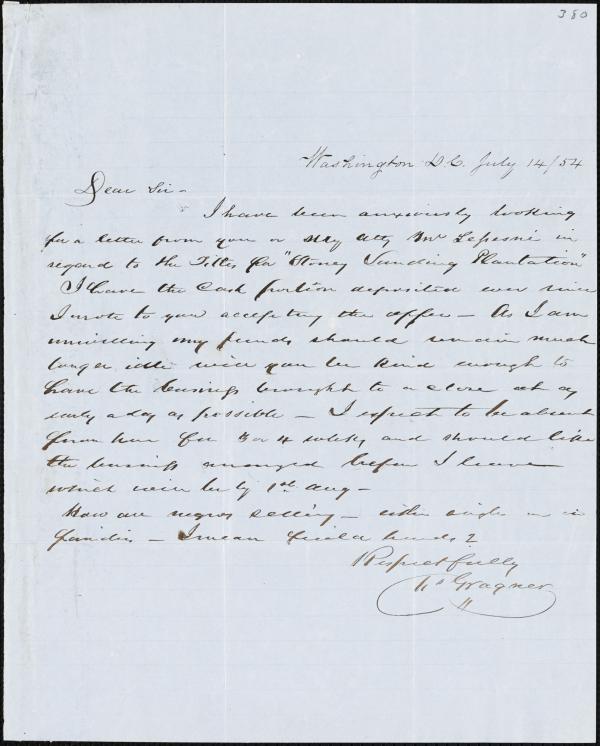 380
Washington D.C. July 14/54
Dear Sir -
I have been anxiously looking
for a letter from you or my atty Mr Lepesné in
regard to the Titles for "Stoney Landing Plantation"
I have the Cash portion deposited ever since
I wrote to you accepting the offer - As I am
unwilling my funds should remain much
longer idle will you be kind enough to
have the business brought to a close at as
early a day as possible - I expect to be absent
from here for 3 or 4 weeks, and should like
the business arranged before I leave
which will be by 1st Aug -
How are negros selling - either single or in
families - I mean field hands ?
Respectfully
Gragner